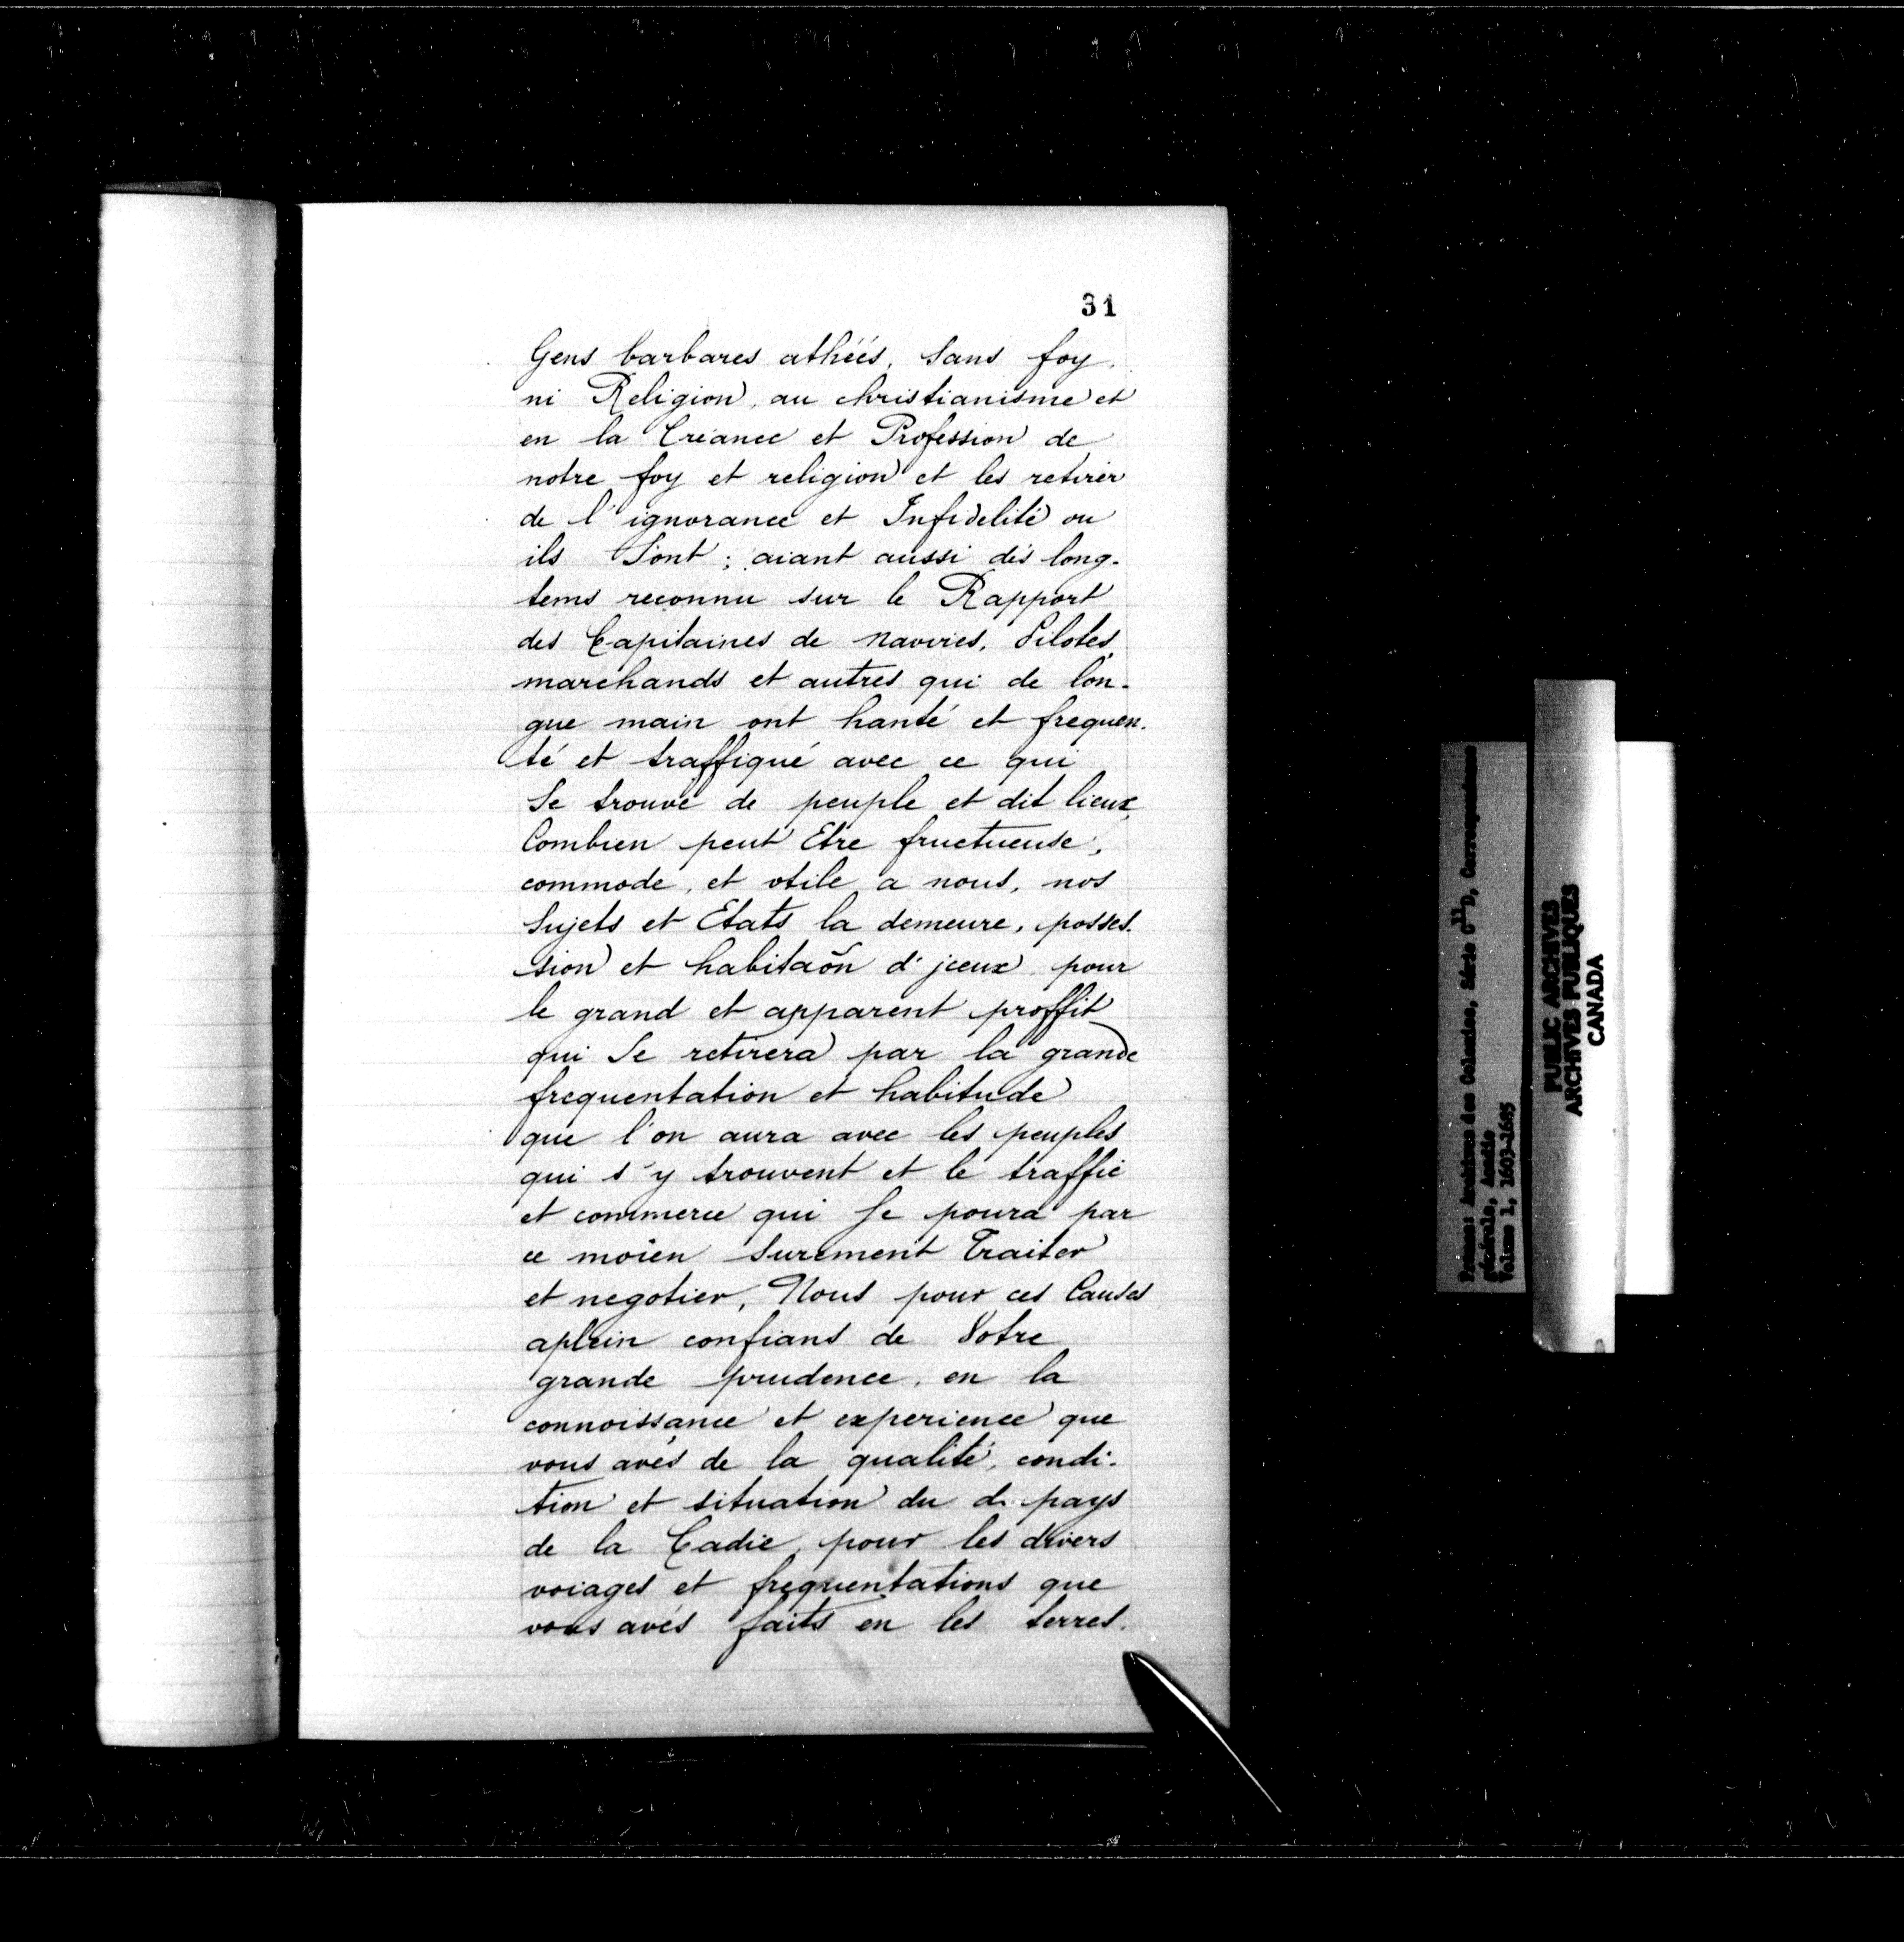 31
Gens barbares athéés, sans foy,
ni Religion, au christianisme et
en la Créance et Profession de
notre foy et religion et les retirer
de l'ignorance et Infidelité ou
ils Sont ; aiant aussi dés long-
tems reconnu sur le Rapport
des Capitaines de navires, Pilotes,
marchands et autres qui de lon-
gue main ont hanté et frequen-
té et traffiqué avec ce qui
Se trouve de peuple et dit lieux,
Combien peut Etre fructueuse,
commode, et utile a nous, nos
Sujets et Etats la demeure, posses-
sion et habitaõn d'jceux, pour
le grand et apparent proffit
qui Se retirera par la grande
frequentation et habitude
que l'on aura avec les peuples
qui s'y trouvent et le traffic
et commerce qui Se poura par
ce moïen Surement Traiter
et negotier, Nous pour ces Causes
aplein confians de Votre
grande prudence, en la
connoissance et experience que
vous avés de la qualité, condi-
tion et situation du d. pays
de la Cadie, pour les divers
voiages et frequentations que
vous avés faits en les terres.
France: Archives des Colonies, Série C11D, Correspondance
générale, Acadie
Volume 1, 1603-1685
PUBLIC ARCHIVES
ARCHIVES PUBLIQUES
CANADA